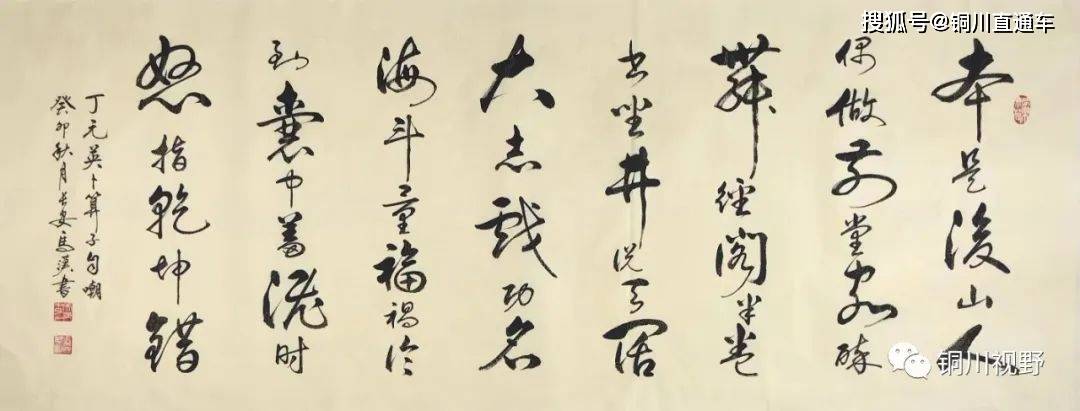 搜狐号@铜川直通车
本是後山人
偶做前堂客醉
舞經閣半卷
书坐井说天阔
大志戏功名
海斗量福禍论
到囊中羞涩时
怒指乾坤錯
丁元英卜算子自嘲
癸卯秋月长安馬書
铜川视野